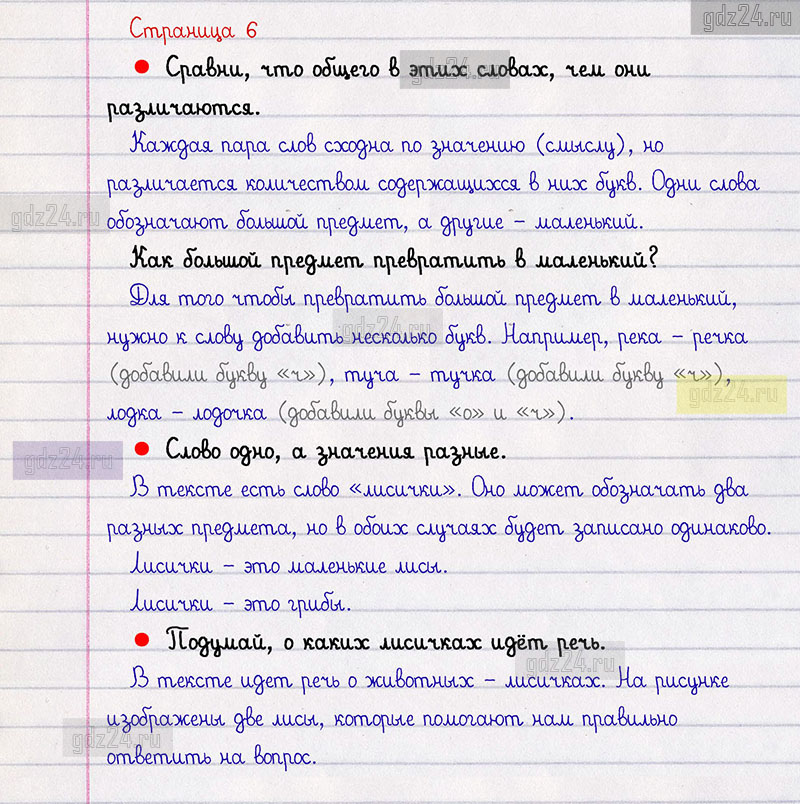 gdz24.ru
Страница 6
Сравни, что общего в этих словах, чем они
gdz24.ru
различаются.
Каждая пара слов сходна по значению (смыслу), но
различается количеством содержащихся в них букв. Одни слова
gdz24.ru
обозначают большой предмет, а другие – маленький.
Как большой предмет превратить в маленький?
Для того чтобы превратить большой предмет в маленький,
gdz24.ru
нужно к слову добавить несколько букв. Например, река – речка
(добавили букву «ч»), туча – тучка (добавили букву «ч»),
gdz24.ru
лодка – лодочка (добавили буквы «о» и «ч»).
Слово одно, а значения разные.
gdz24.ru
В тексте есть слово «лисички». Оно может обозначать два
разных предмета, но в обоих случаях будет записано одинаково.
Лисички – это маленькие лисы.
Лисички – это грибы.
Подумай, о каких лисичках идёт речь.
gdz24.ru
В тексте идет речь о животных – лисичках. На рисунке
изображены две лисы, которые помогают нам правильно
gdz24.ru
ответить на вопрос.